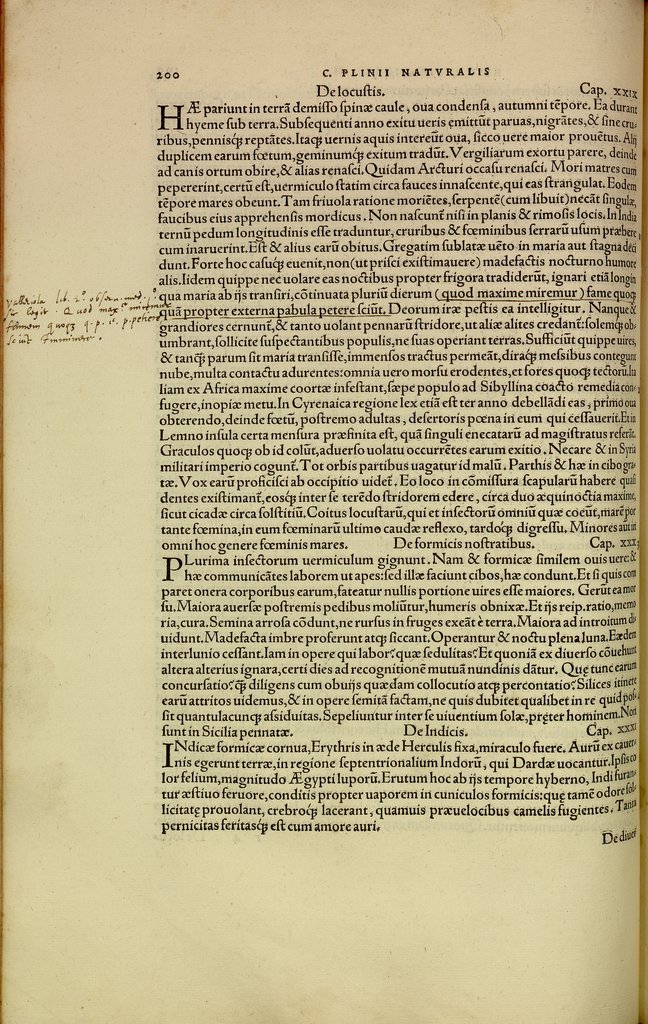 200
C. PLINII NATVRALIS
De locustis. Cap. XXIX
HÆ pariunt in terrã demisso spinæ caule, oua condensa, autumni tẽpore. Ea durant
hyeme sub terra. Subsequenti anno exitu ueris emittũt paruas, nigrãtes, & sine cru-
ribus, pennisq́ʒ reptãtes. Itaq́ʒ uernis aquis intereũt oua, sicco uere maior prouẽtus. Alij
duplicem earum fœtum, geminumq́ʒ exitum tradũt. Vergiliarum exortu parere, deinde
ad canis ortum obire, & alias renasci. Quidam Arcturi occasu renasci. Mori matres cum
pepererint, certũ est, uermiculo statim circa fauces innascente, qui eas strangulat. Eodem
tẽpore mares obeunt. Tam friuola ratione moriẽtes, serpentẽ (cum libuit) necãt singulæ,
faucibus eius apprehensis mordicus. Non nascunt᷑ nisi in planis & rimosis locis. In India
ternũ pedum longitudinis esse traduntur, cruribus & fœminibus serrarũ usum præbere,
cum inaruerint. Est & alius earũ obitus. Gregatim sublatæ uẽto in maria aut stagna deci
dunt. Forte hoc casuq́ʒ euenit, non (ut prisci existimauere) madefactis nocturno humore
alis. Iidem quippe nec uolare eas noctibus propter frigora tradiderũt, ignari etiã longin
qua maria ab ijs transiri, cõtinuata pluriũ dierum (quod maxime miremur) fame quoq́ʒ
quã propter externa pabula petere sciũt. Deorum iræ pestis ea intelligitur. Nanque &
grandiores cernunt᷑, & tanto uolant pennarũ stridore, ut aliæ alites credant᷑: solemq́ʒ ob-
umbrant, sollicite suspectantibus populis, ne suas operiant terras. Sufficiũt quippe uires,
& tanq́ʒ parum sit maria transisse, immensos tractus permeãt, diraq́ʒ messibus contegunt
nube, multa contactu adurentes: omnia uero morsu erodentes, et fores quoq́ʒ tectorũ. Ita
liam ex Africa maxime coortæ infestant, sæpe populo ad Sibyllina coacto remedia con-
fugere, inopiæ metu. In Cyrenaica regione lex etiã est ter anno debellãdi eas, primo oua
obterendo, deinde fœtũ, postremo adultas, desertoris pœna in eum qui cessauerit. Et in
Lemno insula certa mensura præfinita est, quã singuli enecatarũ ad magistratus referãt.
Graculos quoq́ʒ ob id colũt, aduerso uolatu occurrẽtes earum exitio. Necare & in Syria
militari imperio cogunt᷑. Tot orbis partibus uagatur id malũ. Parthis & hæ in cibo gra-
tæ. Vox earũ proficisci ab occipitio uidet᷑. Eo loco in cõmissura scapularũ habere quasi
dentes existimant᷑, eosq́ʒ inter se terẽdo stridorem edere, circa duo æquinoctia maxime,
sicut cicadæ circa solstitiũ. Coitus locustarũ, qui et insectorũ omniũ quæ coeũt, marẽ por
tante fœmina, in eum fœminarũ ultimo caudæ reflexo, tardoq́ʒ digressu. Minores aut᷑ in
omni hoc genere fœminis mares. De formicis nostratibus. Cap. XXX.
PLurima insectorum uermiculum gignunt. Nam & formicæ similem ouis uere: &
hæ communicãtes laborem ut apes: sed illæ faciunt cibos, hæ condunt. Et si quis com
paret onera corporibus earum, fateatur nullis portione uires esse maiores. Gerũt ea mor
su. Maiora auersæ postremis pedibus moliũtur, humeris obnixæ. Et ijs reip. ratio, memo
ria, cura. Semina arrosa cõdunt, ne rursus in fruges exeãt è terra. Maiora ad introitum di
uidunt. Madefacta imbre proferunt atq́ʒ siccant. Operantur & noctu plena luna. Eædem
interlunio cessant. Iam in opere qui labor? quæ sedulitas? Et quoniã ex diuerso cõuehunt
altera alterius ignara, certi dies ad recognitionẽ mutuã nundinis dãtur. Quę tunc earum
concursatio? q̃ʒ diligens cum obuijs quædam collocutio atq́ʒ percontatio? Silices itinere
earũ attritos uidemus, & in opere semitã factam, ne quis dubitet qualibet in re quid pos-
sit quantulacunq́ʒ assiduitas. Sepeliuntur inter se uiuentium solæ, pręter hominem. Non
sunt in Sicilia pennatæ. De Indicis. Cap. XXXI
INdicæ formicæ cornua, Erythris in æde Herculis fixa, miraculo fuere. Aurũ ex cauer-
nis egerunt terræ, in regione septentrionalium Indorũ, qui Dardæ uocantur. Ipsis co
lor felium, magnitudo Ægypti luporũ. Erutum hoc ab ijs tempore hyberno, Indi furan-
tur æstiuo feruore, conditis propter uaporem in cuniculos formicis: quę tamẽ odore sol-
licitatę prouolant, crebroq́ʒ lacerant, quamuis præuelocibus camelis fugientes. Tanta
pernicitas feritasq́ʒ est cum amore auri.
De diuer